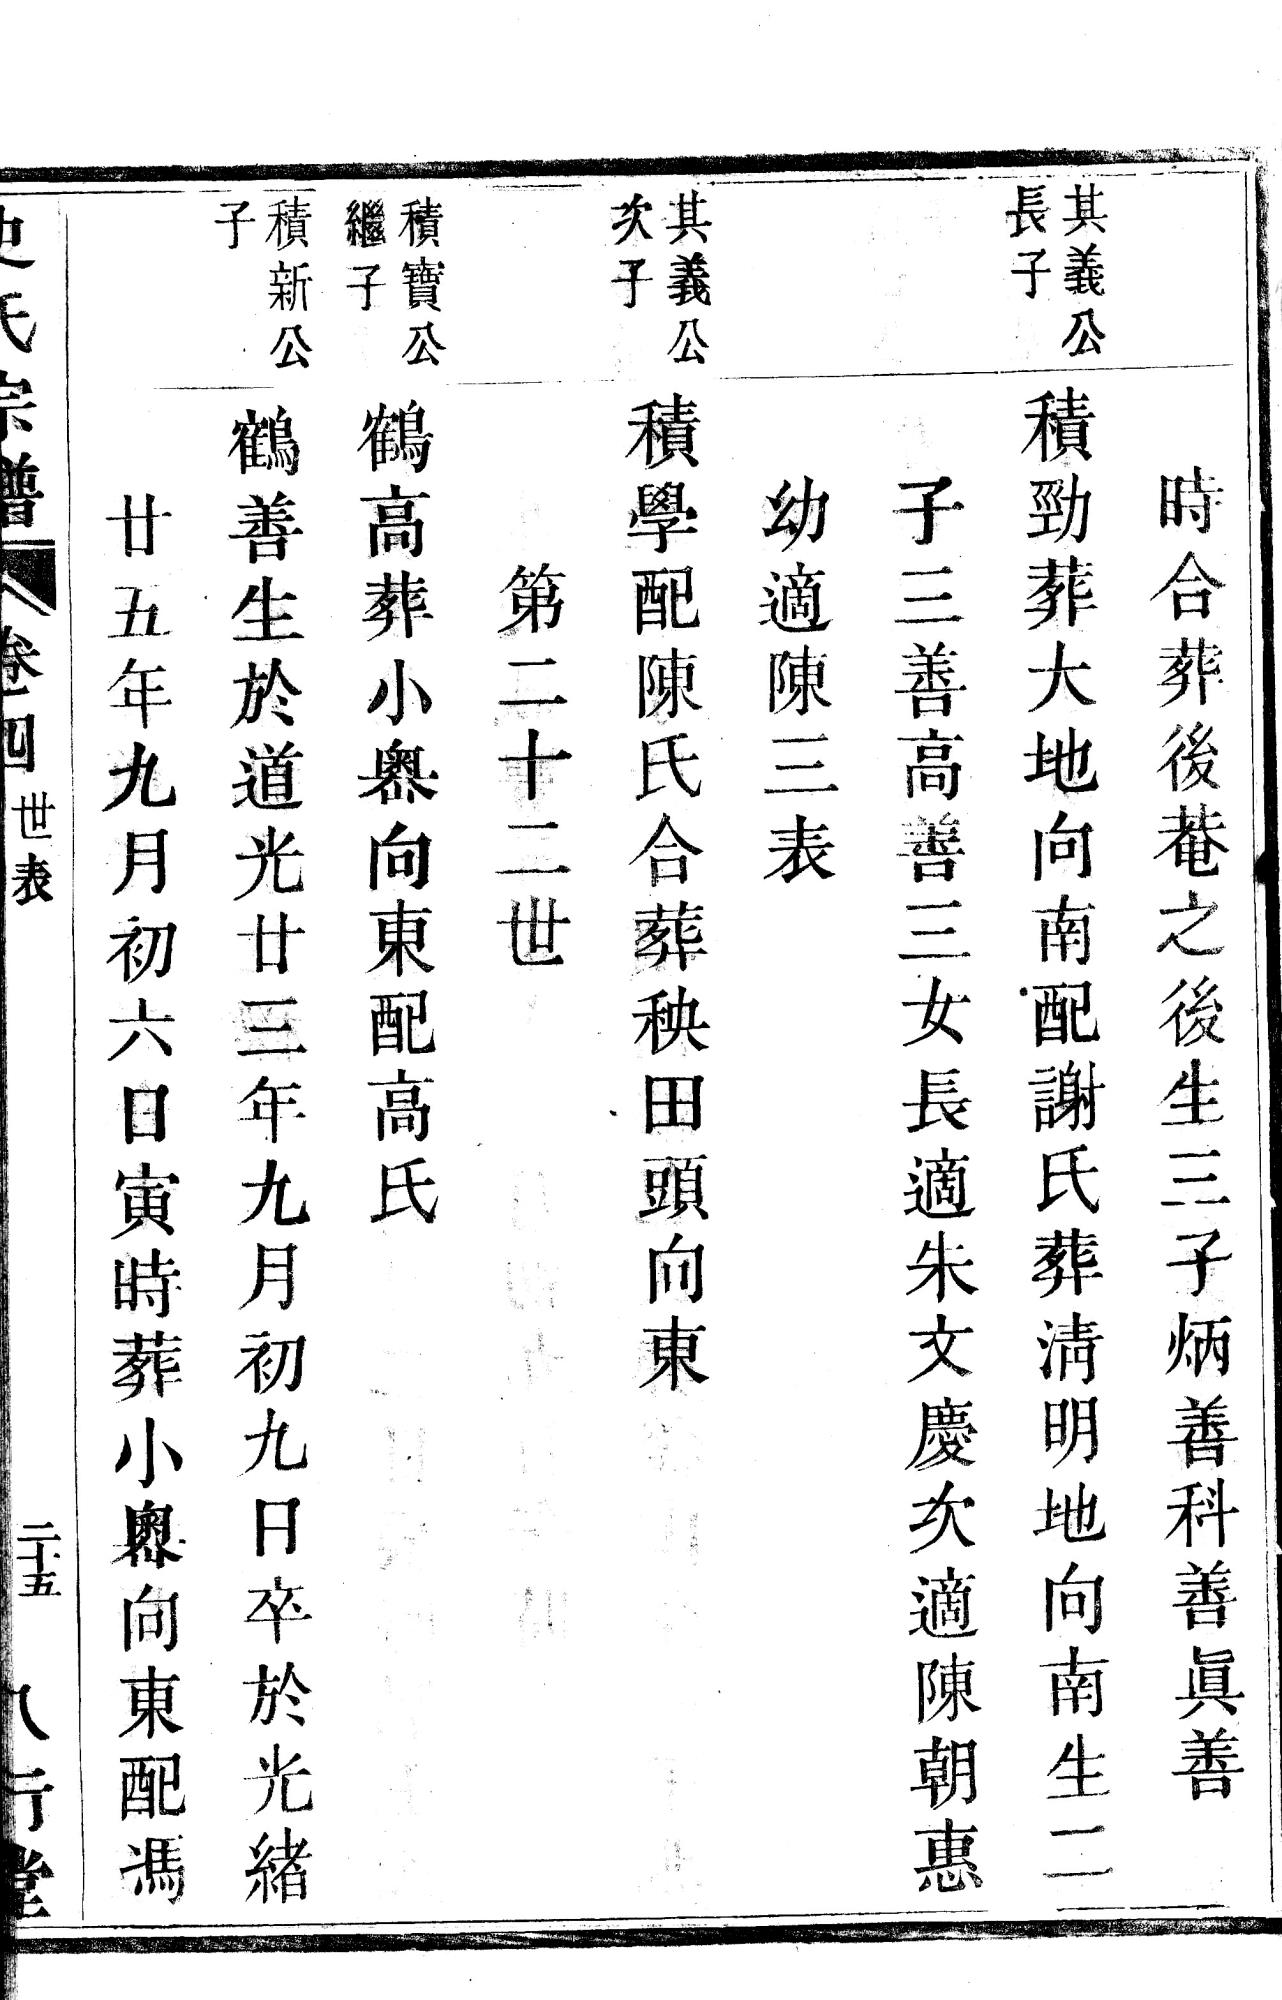 時合葬後菴之後生三子炳善科善眞善
其義公
長子
積勁葬大地向南配謝氏葬淸明地向南生二
子三善高善三女長適朱文慶次適陳朝惠
幼適陳三表
其義公
次子
積學配陳氏合葬秧田頭向東
第二十二世
積寶公
繼子
鶴高葬小奧向東配高氏
積新公
子
鶴善生於道光廿三年九月初九日卒於光緒
廿五年九月初六日寅時葬小奧向東配馮
史氏宗譜 卷四 世表 二十五 八行堂